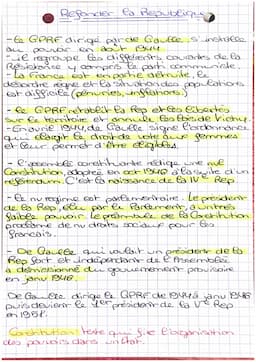 Refonder la République
- Le GPRF dirigé par de Gaulle s'installe
au pouvoir en août 1944
- il regroupe les différents courants de la
Résistance y compris le parti communiste.
- La France est en partie détruite, le
désordre règne et la situation des populations
est difficile (pénuries, inflations)
- Le GPRF rétablit la Rep et les libertés
sur le territoire et annule les lois de Vichy.
- En avril 1944, de Gaulle signe l'ordonnance
qui élargit le droit de vote aux femmes
et leur permet d'être éligibles.
- L'assemblé constituante rédige une nvl
Constitution, adoptée en oct 1946 à la suite d'un
référendum. C'est la naissance de la IVe Rep
- Le nv regime est parlementaire. Le président
de la Rep, élu par le Parlement, a un très
faible pouvoir. Le préambule de la Constitution
proclame de nv droits sociaux pour les
français.
- De Gaulle qui voulait un président de la
Rep fort et indépendant de l'Assemblée
a démissionné du gouvernement provisoire
en janv 1946.
De Gaulle dirige le GPRF de 1944 à janv 1946
puis devient le 1er président de la Ve Rep
en 1958.
Constitution: texte qui fixe l'organisation
des pouvoirs dans un État.